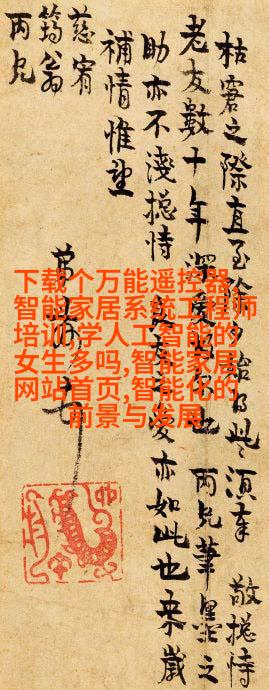 枯窘之際直至除夕始此敬摠恃
老友數十年深愛也丙兄筆墨之
助亦不淺摠恃愛亦如此也來歲
補情惟望
慈宥
筠翁
丙兄
弟
下载个万能遥控器,
智能家居系统工程师
培训,学人工智能的
女生多吗,智能家居
网站首页,智能化的
前景与发展